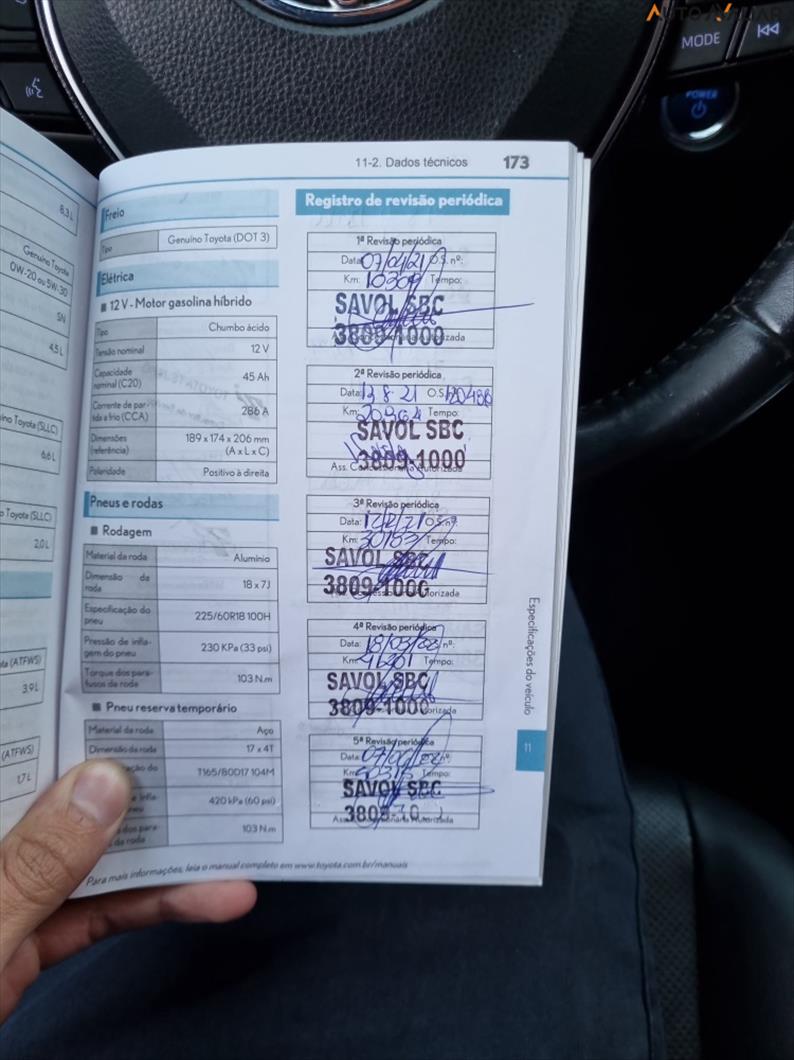 AUTO AV
MODE
POWER
8,3 L
Genuíno Toyota
0W-20 ou 5W-30
SN
4,5 L
íno Toyota (SLLC)
6,6 L
o Toyota (SLLC)
2,0 L
ta (ATFWS)
3,9 L
(ATFWS)
1,7 L
11-2. Dados técnicos 173
Freio
Tipo Genuíno Toyota (DOT 3)
Elétrica
12 V - Motor gasolina híbrido
Tipo Chumbo ácido
Tensão nominal 12 V
Capacidade nominal (C20) 45 Ah
Corrente de partida a frio (CCA) 286 A
Dimensões (referência) 189 x 174 x 206 mm (A x L x C)
Polaridade Positivo à direita
Pneus e rodas
Rodagem
Material da roda Alumínio
Dimensão da roda 18 x 7J
Especificação do pneu 225/60R18 100H
Pressão de inflagem do pneu 230 KPa (33 psi)
Torque dos parafusos da roda 103 N.m
Pneu reserva temporário
Material da roda Aço
Dimensão da roda 17 x 4T
ação do T165/80D17 104M
e infla- neu 420 kPa (60 psi)
dos para- da roda 103 N.m
Para mais informações, leia o manual completo em www.toyota.com.br/manuais
Registro de revisão periódica
1ª Revisão periódica
Data: 07/04/21 O.S. nº:
Km: 10309 Tempo:
SAVOL SBC
3809-1000
2ª Revisão periódica
Data: 13 8 21 O.S. 120486
Km: 20964 Tempo:
SAVOL SBC
3809-1000
Ass. Concessionária Autorizada
3ª Revisão periódica
Data: O.S. nº:
Km: 30153 Tempo:
SAVOL SBC
3809-1000
4ª Revisão periódica
Data: 18/03/22 nº:
Km: 41201 Tempo:
SAVOL SBC
3809-1000
5ª Revisão periódica
Data: 07/06/22 nº:
Km: 50315 Tempo:
SAVOL SBC
3809-10
Ass. Concessionária Autorizada
Especificações do veículo
11